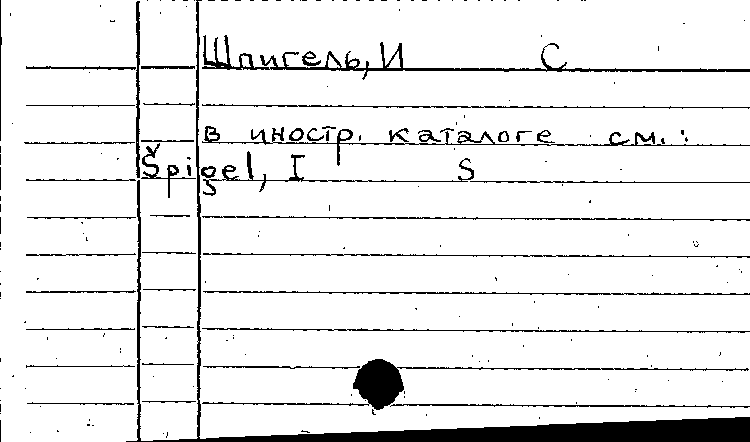 Шпигель, И С
в иностр. каталоге см.:
Špigel, I S